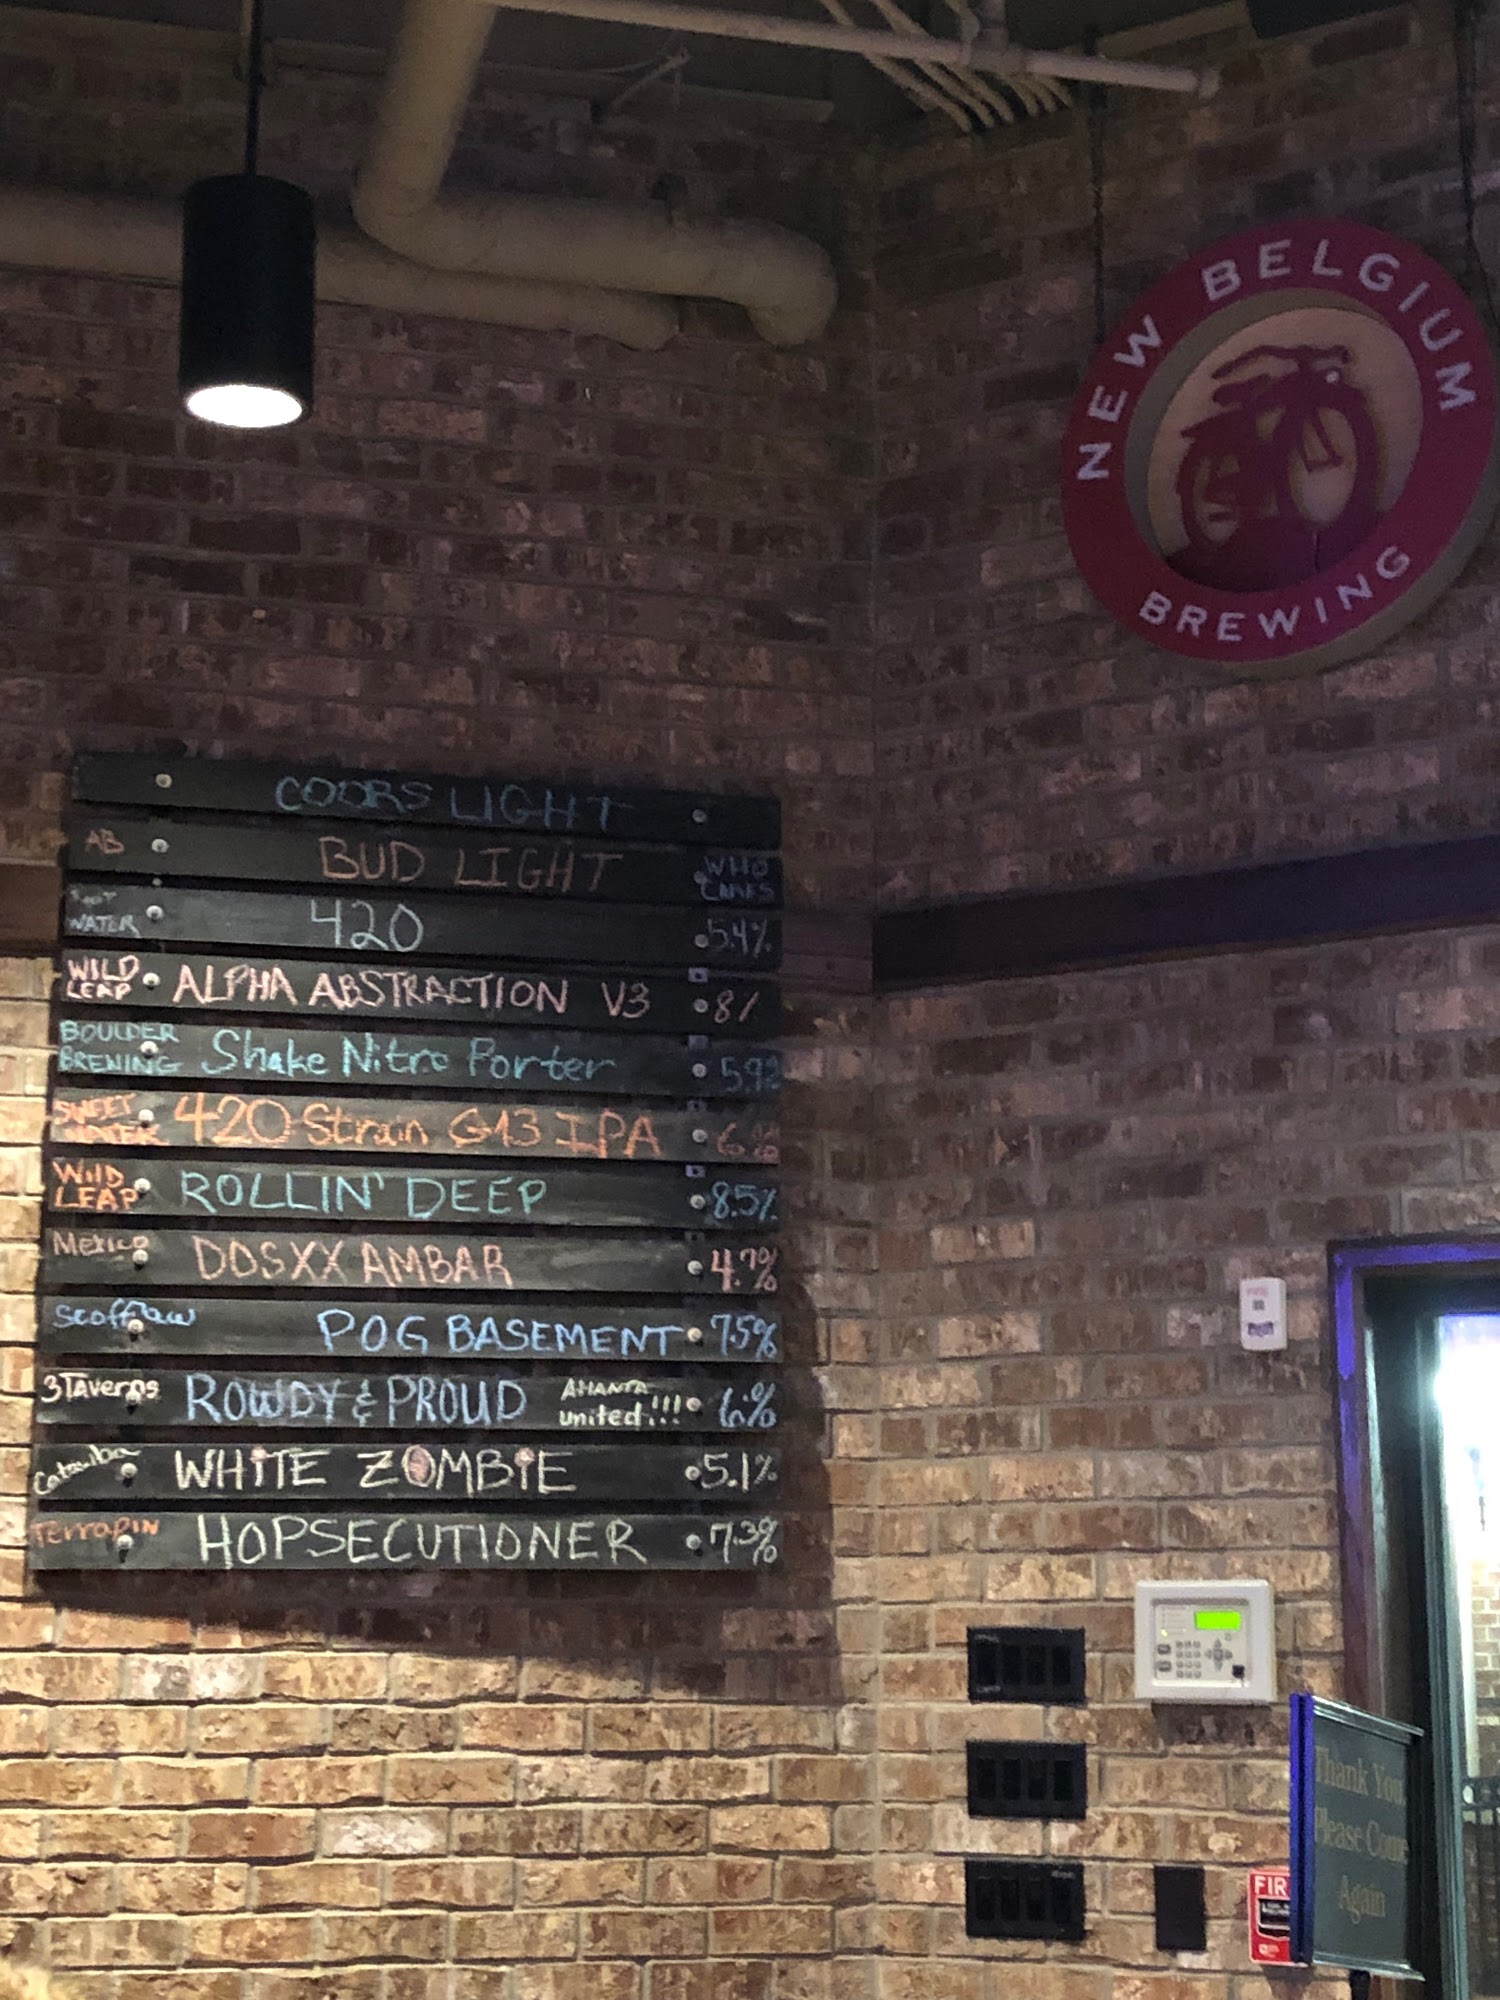 NEW BELGIUM
BREWING
COORS LIGHT
AB BUD LIGHT WHO CARES
WATER 420 5.4%
WILD LEAP ALPHA ABSTRACTION V3 8%
BOULDER BREWING Shake Nitro Porter 5.92
SWEET WATER 420 Strain G13 IPA
WILD LEAP ROLLIN' DEEP 8.5%
Mexico DOSXX AMBAR 4.7%
Scofflaw POG BASEMENT 7.5%
3Taverns ROWDY & PROUD Atlanta united!!!
Catawba WHITE ZOMBIE 5.1%
Terrapin HOPSECUTIONER 7.3%
Thank You
Please Come
Again
FIR